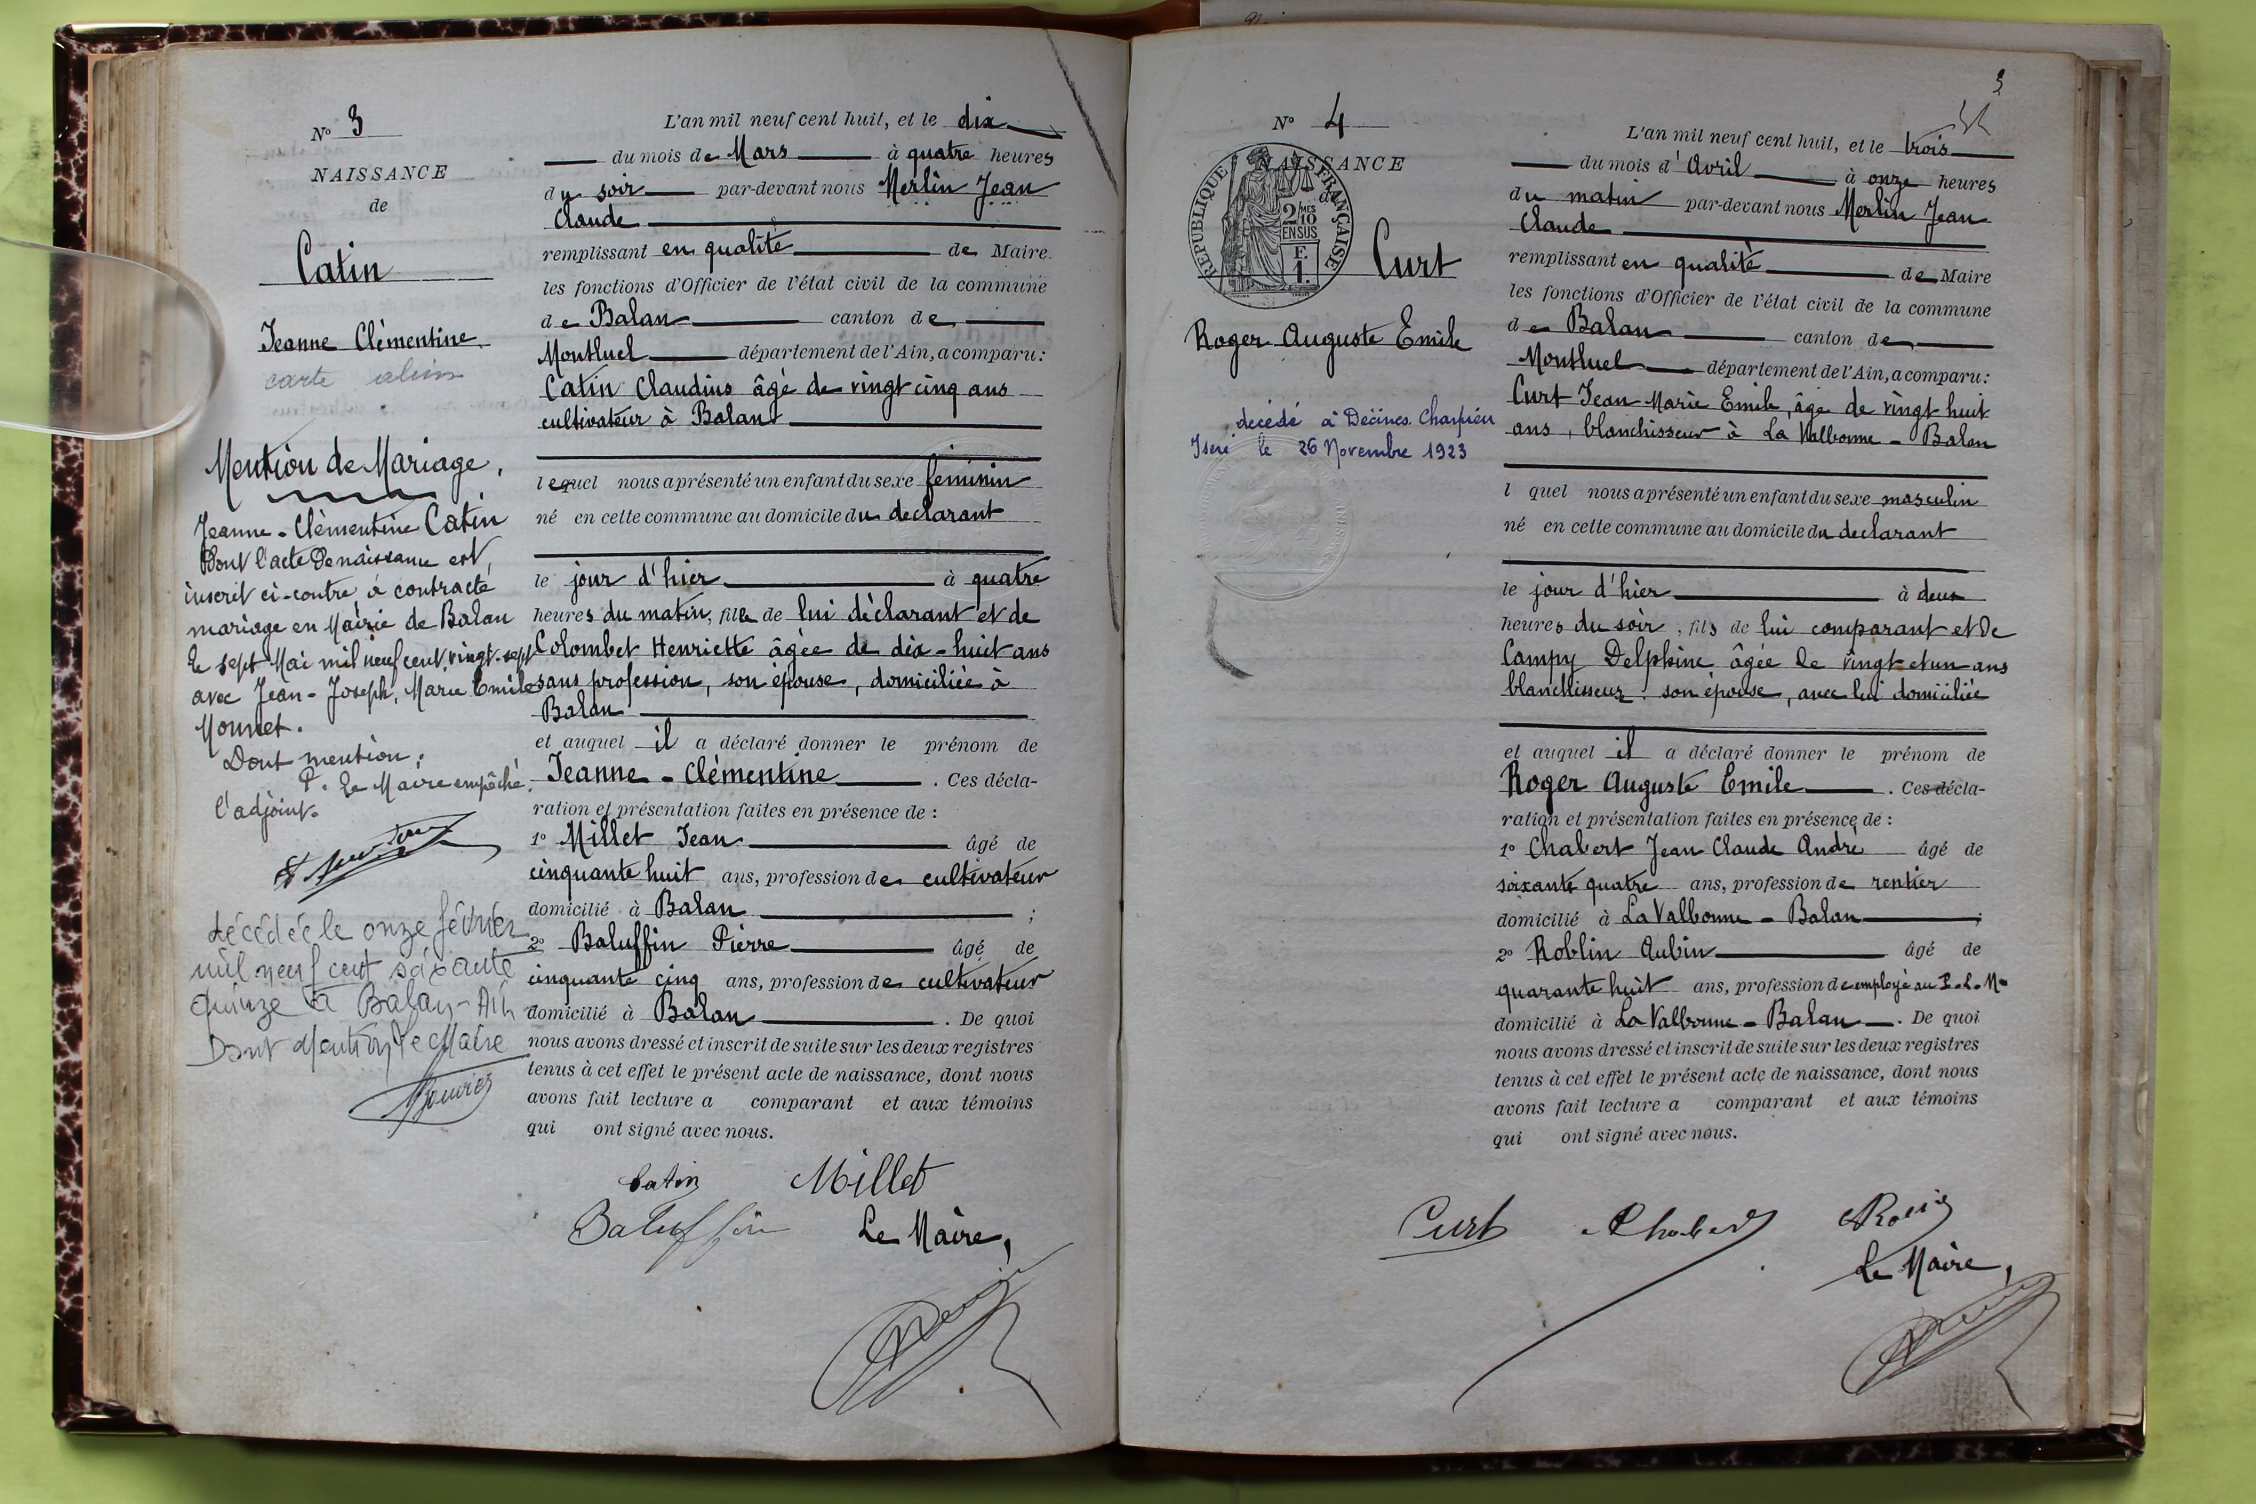 N° 3
NAISSANCE
de
Catin
Jeanne Clémentine
carte
Mention de Mariage.
Jeanne-Clémentine Catin
Dont l'acte de naissance est,
inscrit ci-contre à contracté
mariage en Mairie de Balan
le sept Mai mil neuf cent vingt-sept
avec Jean-Joseph, Marie Emile
Monnet.
Dont mention.
P. Le Maire empêché.
l'adjoint.
décédée le onze février
mil neuf cent soixante
quinze à Balan-Ain
Dont Mention le Maire
Bouvier
L'an mil neuf cent huit, et le dix
du mois de Mars à quatre heures
du soir par-devant nous Merlin Jean
Claude
remplissant en qualité de Maire.
les fonctions d'Officier de l'état civil de la commune
de Balan canton de
Montluel département de l'Ain, a comparu :
Catin Claudius âgé de vingt cinq ans
cultivateur à Balan
lequel nous a présenté un enfant du sexe féminin
né en cette commune au domicile du declarant
le jour d'hier à quatre
heures du matin, fille de lui déclarant et de
Colombet Henriette âgée de dix-huit ans
sans profession, son épouse, domiciliée à
Balan
et auquel il a déclaré donner le prénom de
Jeanne-Clémentine . Ces décla-
ration et présentation faites en présence de :
1° Millet Jean âgé de
cinquante huit ans, profession de cultivateur
domicilié à Balan ;
2° Baluffin Pierre âgé de
cinquante cinq ans, profession de cultivateur
domicilié à Balan . De quoi
nous avons dressé et inscrit de suite sur les deux registres
tenus à cet effet le présent acte de naissance, dont nous
avons fait lecture a comparant et aux témoins
qui ont signé avec nous.
Catin Millet
Baluffin Le Maire,
3
N° 4
NAISSANCE
de
RÉPUBLIQUE FRANÇAISE
2/10 MES
EN SUS
F.
1.
Curt
Roger Auguste Emile
décédé à Décines Charpieu
Isère le 26 Novembre 1923
L'an mil neuf cent huit, et le trois
du mois d'Avril à onze heures
du matin par-devant nous Merlin Jean
Claude
remplissant en qualité de Maire
les fonctions d'Officier de l'état civil de la commune
de Balan canton de
Montluel département de l'Ain, a comparu :
Curt Jean Marie Emile, âgé de vingt huit
ans, blanchisseur à La Valbonne - Balan
l quel nous a présenté un enfant du sexe masculin
né en cette commune au domicile du declarant
le jour d'hier à deux
heures du soir, fils de lui comparant et de
Campy Delphine âgée de vingt et un ans
blanchisseuz. son épouse, avec lui domiciliée
et auquel il a déclaré donner le prénom de
Roger Auguste Emile . Ces décla-
ration et présentation faites en présence de :
1° Chabert Jean Claude André âgé de
soixante quatre ans, profession de rentier
domicilié à La Valbonne - Balan ;
2° Roblin Aubin âgé de
quarante huit ans, profession de employé au P.L.M.
domicilié à La Valbonne - Balan . De quoi
nous avons dressé et inscrit de suite sur les deux registres
tenus à cet effet le présent acte de naissance, dont nous
avons fait lecture a comparant et aux témoins
qui ont signé avec nous.
Curt Chabert
Le Maire,